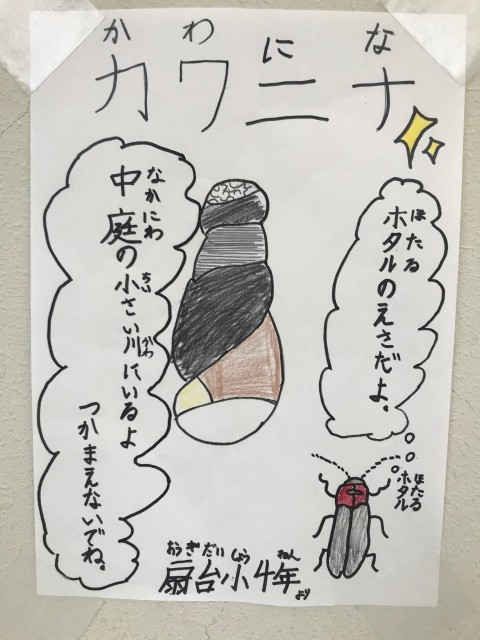 かわにな
カワニナ
ほたる
ホタルのえさだよ。
なかにわ
中庭の小さい川にいるよ
ちい
がわ
つかまえないでね。
ほたる
ホタル
おうぎだいしょう ねん
扇台小4年
より